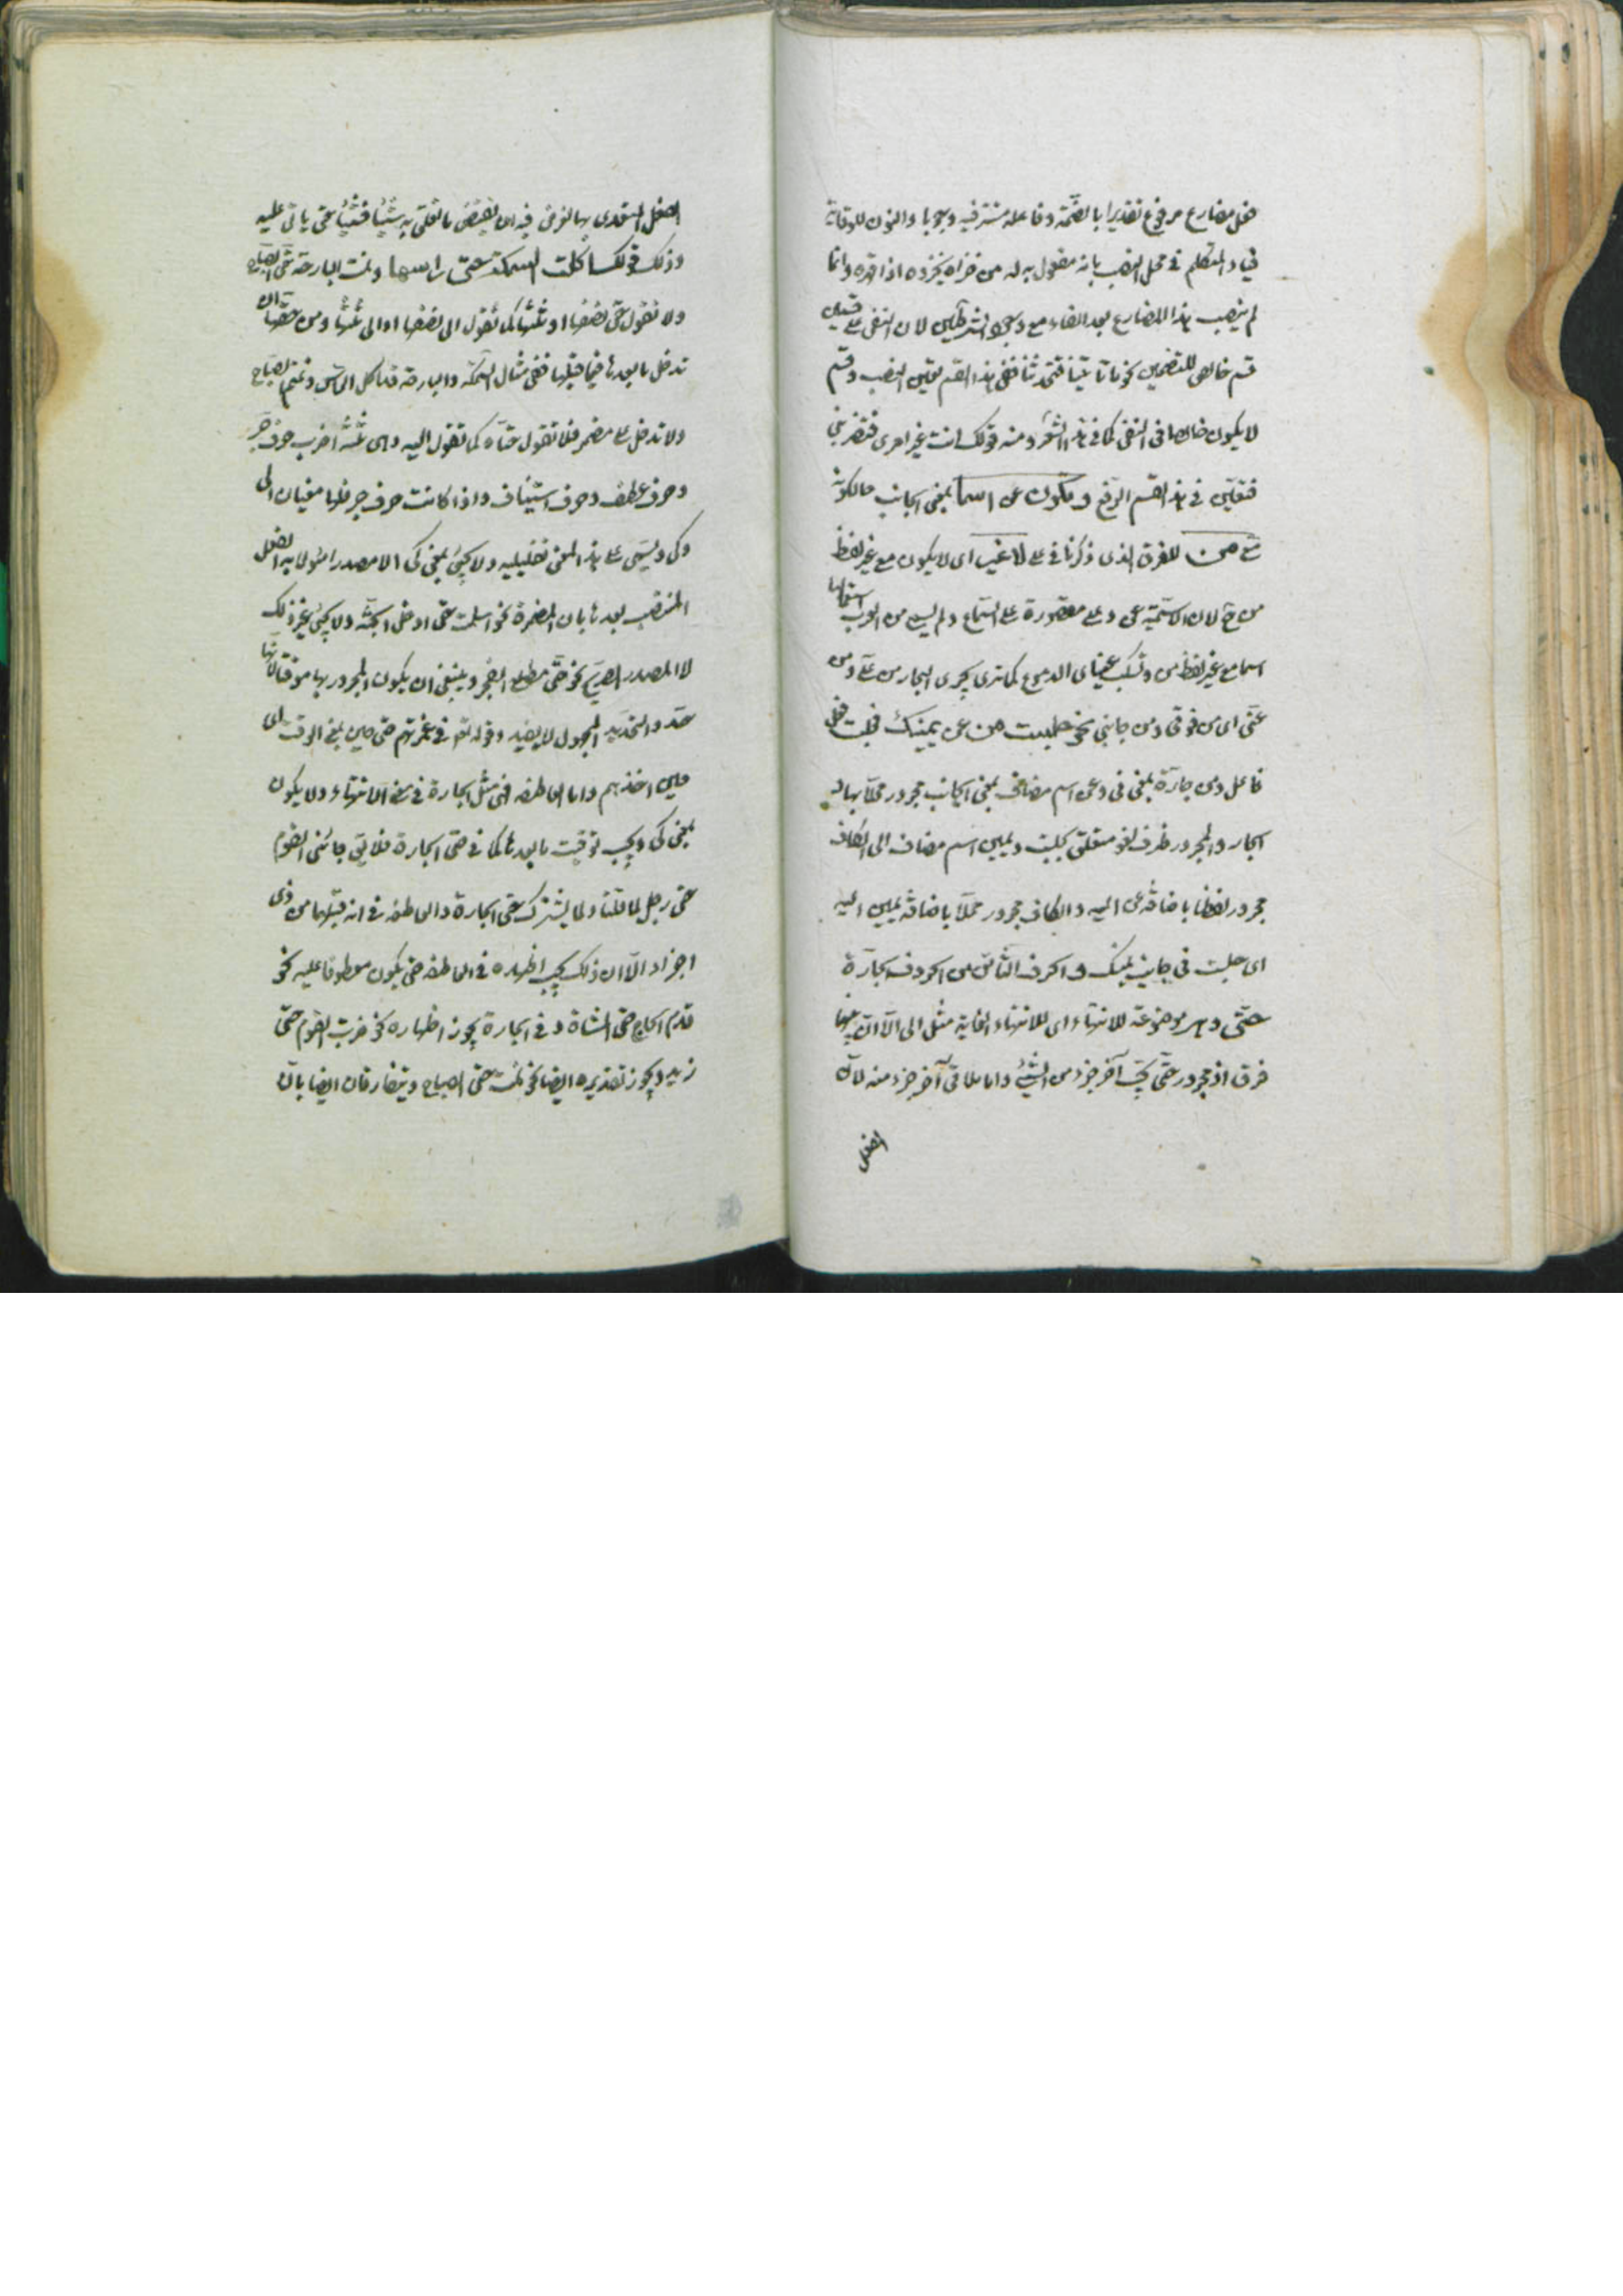 فعل مضارع مرفوع تقديرا بالضمة وفاعله مستتر فيه وجوبا والنون للوقاية
فياء المتكلم في محل النصب بانه مفعول به له من خزاه يخزوه اذا قهره وانما
لم ينصب هذا المضارع بعد الفاء مع وجود الشرطين لان النفي على قسمين
قسم خالص للتضمين نحو ما تأتينا فتحدثنا ففي هذا القسم تعين النصب وقسم
لا يكون خالصا في النفي كما في هذا الشعر ومنه قولك انت غير امرى فتضربني
فتعين في هذا القسم الرفع ويكون عن اسما بمعنى الجانب حالكونه
مع من للفرق الذي ذكرنا في على لا غير اى لا يكون مع غير لفظ
من ح لان الاسمية عن وعلى مقصورة على السماع ولم يسمع من العرب استعمالها
اسما مع غير لفظ من وتسكب عيناى الدموع كما ترى يجرى البحار من على ومن
عنى اى من فوقى ومن جانبى نحو جلست من عن يمينك فجلت فعل
فاعل ومن جارة بمعنى في وعن اسم مضاف بمعنى الجانب مجرور محلا بها و
الجار والمجرور ظرف لغو متعلق بجلست ويمين اسم مضاف الى الكاف
مجرور لفظا باضافة عن اليه والكاف مجرور محلا باضافة يمين اليه
اى جلست في جانب يمينك والحرف الثامن من الحروف الجارة
حتى وهى موضوعة للانتهاء اى لانتهاء الغاية مثل الى الا ان بينهما
فرق اذ مجرور حتى يجب آخر جزء من الشئ واما يلاقى آخر جزء منه لان
الفعل
الفعل المتعدى بها الغرض فيه ان ينقضى ما تعلق به شيئا فشيئا حتى ياتى عليه
وذلك قولك اكلت السمكة حتى راسها ونمت البارحة حتى الصباح
ولا تقول حتى نصفها او ثلثها كما تقول الى نصفها او الى ثلثها ومن حقها ان
تدخل ما بعدها فيما قبلها ففي مثال السمكة والبارحة قد اكل الراس ونيم الصباح
ولا تدخل على مضمر فلا تقول حتاه كما تقول اليه وهى ثلثة اضرب حرف جر
وحرف عطف وحرف استيناف واذا كانت حرف جر فلها معنيان الى
وكى ويسمى على هذا المعنى تعليلية ولا يجئ بمعنى كى الا مصدرا مؤلا به الفعل
المنتصب بعدها بان المضمرة نحو اسلمت حتى ادخل الجنة ولا يجئ غير ذلك
لا المصدر الصريح نحو حتى مطلع الفجر وينبغى ان يكون المجرور بها موقتا لانها
حد والتحديد المجهول لا يفيد وقوله تع في غمرتهم حتى حين بمعنى الوقت اى
حين اخذهم واما العاطفة فهى مثل الجارة في معنى الانتهاء ولا يكون
بمعنى كى ويجب توقيت ما بعدها كما في حتى الجارة فلا يق جائنى القوم
حتى رجل لما قلنا ولما يشترك حتى الجارة والعاطفة في انه قبلهما من ذى
اجزاء الا ان ذلك يجب اظهاره في العاطفة حتى يكون معطوفا عليه نحو
قدم الحاج حتى المشاة وفي الجارة يجوز اظهاره نحو ضربت القوم حتى
زيد ويجوز تقديره ايضا نحو نمت حتى الصباح ويتفارقان ايضا بان